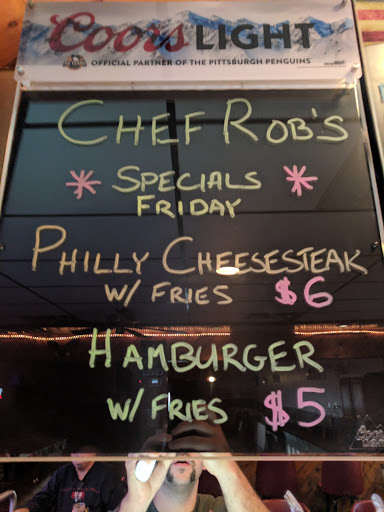 Coors LIGHT
OFFICIAL PARTNER OF THE PITTSBURGH PENGUINS
CHEF ROB'S
* SPECIALS *
FRIDAY
PHILLY CHEESESTEAK
W/ FRIES $6
HAMBURGER
W/ FRIES $5